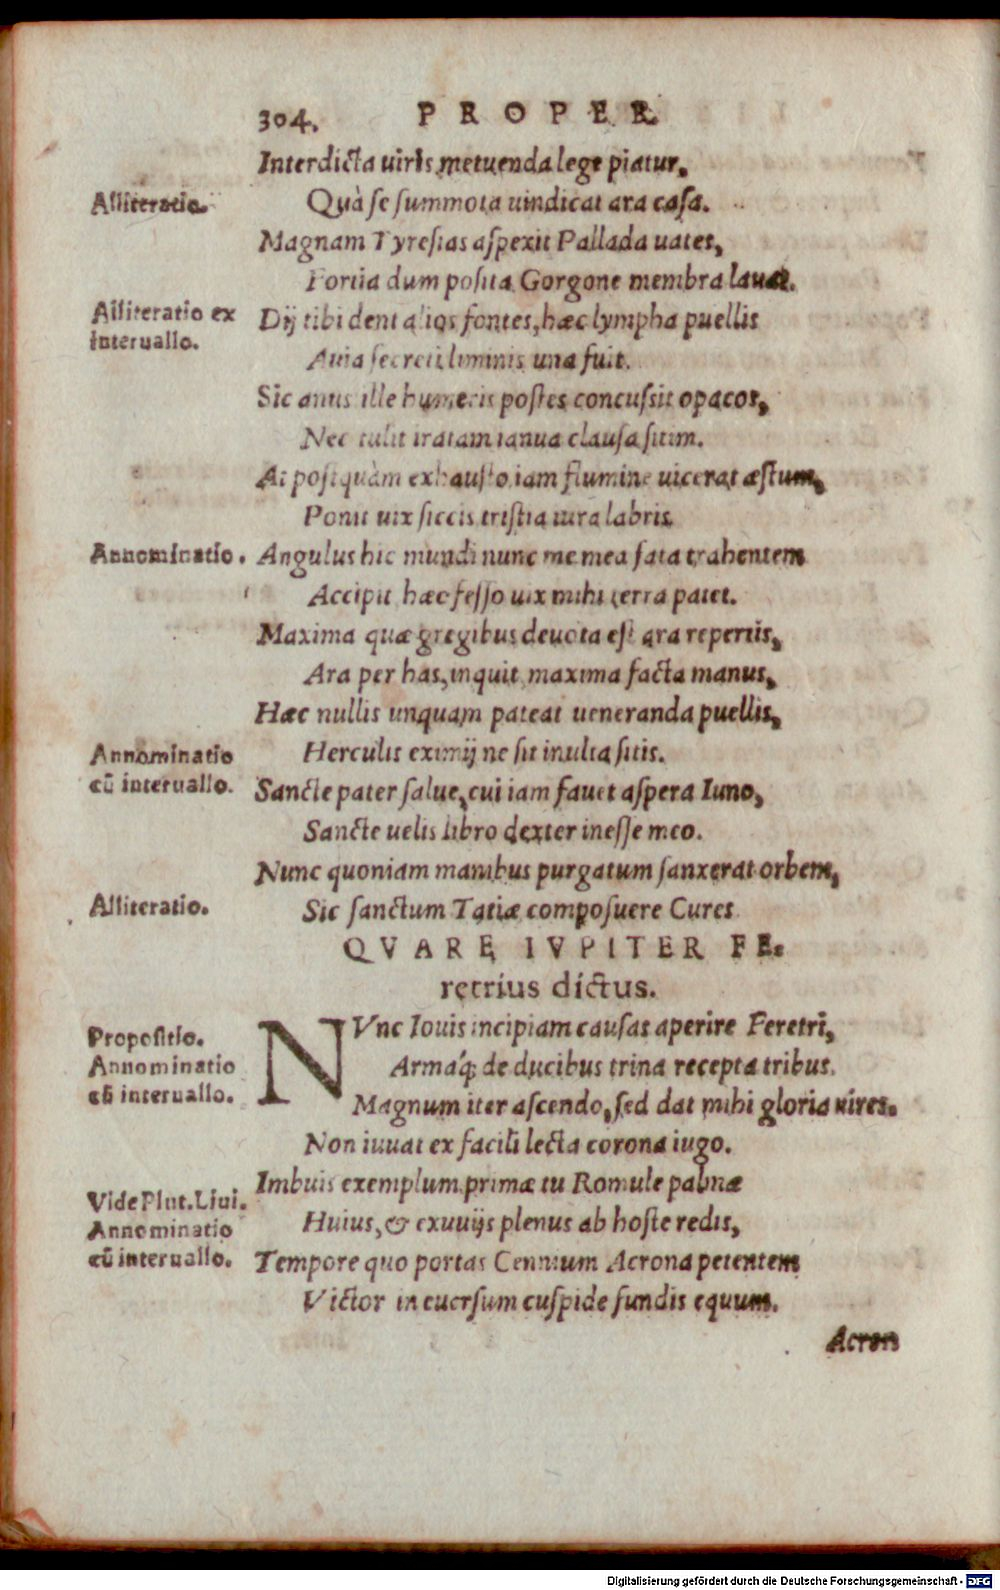 304. PROPER.
Interdicta uiris metuenda lege piatur,
Alliteratio. Quà se summota uindicat ara casa.
Magnam Tyresias aspexit Pallada uates,
Fortia dum posita Gorgone membra lauat.
Alliteratio ex Dij tibi dent alios fontes, hæc lympha puellis
interuallo.
Auia secreti liminis una fuit.
Sic anus ille humeris postes concussit opacos,
Nec tulit iratam ianua clausa sitim.
At postquàm exhausto iam flumine uicerat æstum,
Ponit uix siccis tristia iura labris.
Annominatio. Angulus hic mundi nunc me mea fata trahentem
Accipit hæc fesso uix mihi terra patet.
Maxima quæ gregibus deuota est ara repertis,
Ara per has, inquit, maxima facta manus,
Hæc nullis unquam pateat ueneranda puellis,
Annominatio Herculis eximij ne sit inulta sitis.
cū interuallo. Sancte pater salue, cui iam fauet aspera Iuno,
Sancte uelis libro dexter inesse meo.
Nunc quoniam manibus purgatum sanxerat orbem,
Alliteratio. Sic sanctum Tatiæ composuere Cures
QVARE IVPITER FE-
retrius dictus.
Propositio. NVnc Iouis incipiam causas aperire Feretri,
Annominatio Armaq́; de ducibus trina recepta tribus.
cū interuallo.
Magnum iter ascendo, sed dat mihi gloria uires.
Non iuuat ex facili lecta corona iugo.
Imbuis exemplum primæ tu Romule palmæ
Vide Plut. Liui.
Annominatio Huius, & exuuijs plenus ab hoste redis,
cū interuallo. Tempore quo portas Ceninum Acrona petentem
Victor in euersum cuspide fundis equum.
Acron
Digitalisierung gefördert durch die Deutsche Forschungsgemeinschaft - DFG